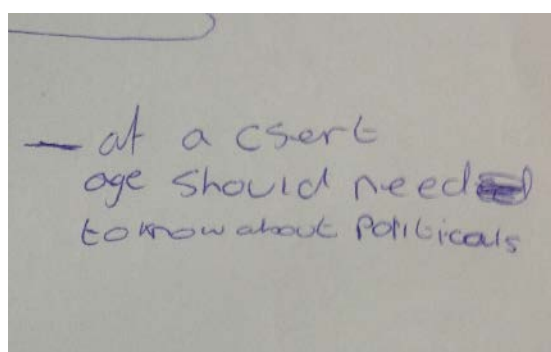 - at a csert
age should need
to know about Politicals